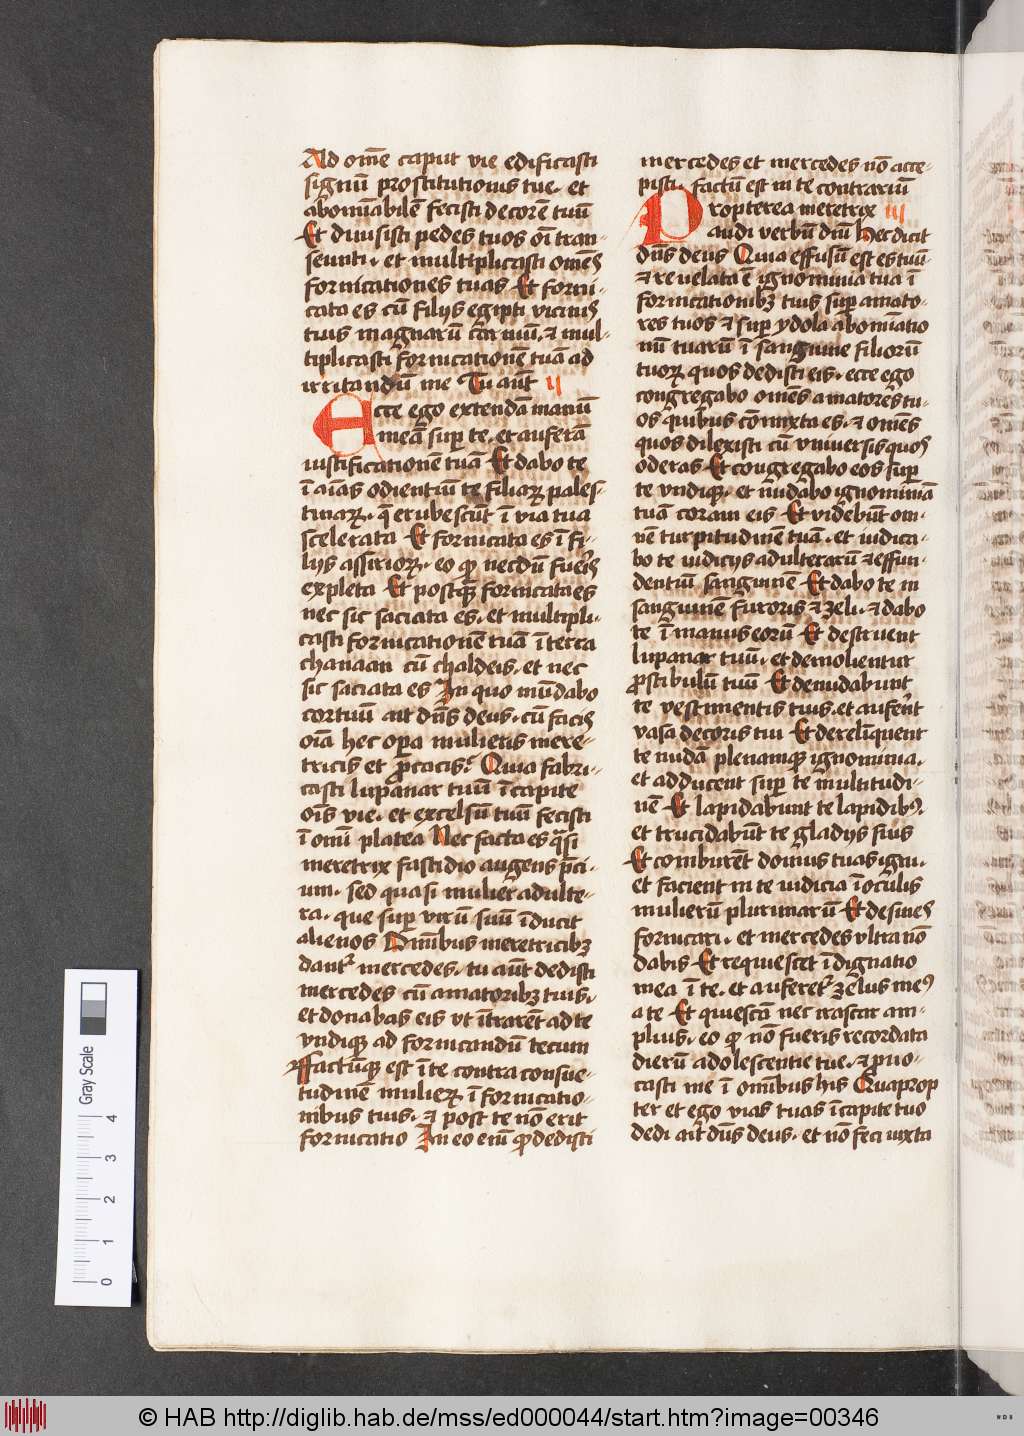 Ad om̄e caput vie edificasti
signū prostitutionis tue· et
abomīabilē fecisti decorē tuū
Et diuisisti pedes tuos oī tran-
seunti· et multiplicasti omēs
fornicationes tuas Et forni-
cata es cū filijs egipti vicinis
tuis magnarū carniū· & mul-
tiplicasti fornicationē tuā ad
irritandū me Tu aūt ij
Ecce ego extendā manū
meā sup te· et auferā
iustificationē tuā Et dabo te
ī aīas odientiū te filiaꝝ pales-
tinaꝝ· q̄ erubescūt ī via tua
scelerata Et fornicata es ī fi-
lijs assirioꝝ· eo ꝙ necdū fueris
expleta Et postq̄ fornicata es
nec sic saciata es· et multipli-
casti fornicationē tuā ī terra
chanaan cū chaldeis· et nec
sic saciata es In quo mūdabo
cor tuū ait dn̄s deus· cū facis
oīa hec oꝑa mulieris mere-
tricis et ꝓcacis Quia fabri-
casti lupanar tuū ī capite
oīs vie· et excelsū tuū fecisti
ī omī platea Nec facta es q̄si
meretrix fastidio augens p̄ci-
um· sed quasi mulier adulte-
ra· que sup virū suū īducit
alienos Omībus meretricibꝫ
dant᷑ mercedes· tu aūt dedisti
mercedes cū amatoribꝫ tuis·
et donabas eis vt ītrarēt ad te
vndiqꝫ ad fornicandū tecum
ffactūqꝫ est ī te contra consue-
tudinē mulieꝝ ī fornicatio-
nibus tuis· & post te nō erit
fornicatio In eo eīm ꝙ dedisti
mercedes et mercedes nō acce-
pisti· factū est in te contrariū
Propterea meretrix iij
audi verbū dn̄i Hec dicit
dn̄s deus Quia effusū est es tuū
& reuelata ē ignominia tua ī
fornicationibꝫ tuis sup amato-
res tuos & sup ydola abomīatio
nū tuarū ī sanguine filiorū
tuoꝝ quos dedisti eis· ecce ego
congregabo omēs amatores tu-
os quibus cōmixta es· & omēs
quos dilexisti cū vniuersis quos
oderas Et congregabo eos sup
te vndiqꝫ· et nudabo ignominiā
tuā coram eis Et videbūt om-
nē turpitudinē tuā· et iudica-
bo te iudicijs adulterarū & effun-
dentiū sanguinē Et dabo te in
sanguinē furoris & zeli· & dabo
te ī manus eorū Et destruent
lupanar tuū· et demolientur
ꝓstibulū tuū Et denudabunt
te vestimentis tuis· et auferēt
vasa decoris tui Et derelīquent
te nudā plenamqꝫ ignominia·
et adducent sup te multitudi-
nē Et lapidabunt te lapidibꝰ·
et trucidabūt te gladijs suis
Et comburēt domus tuas igni·
et facient in te iudicia ī oculis
mulierū plurimarū Et desines
fornicari· et mercedes vltra nō
dabis Et requiescet īdignatio
mea ī te· et auferet᷑ zelus meꝰ
a te Et quiescā nec irascar am-
plius· eo ꝙ nō fueris recordata
dierū adolescentie tue· & ꝓuo-
casti me ī omībus his Quaprop
ter et ego vias tuas ī capite tuo
dedi ait dn̄s deus· et nō feci iuxta
Gray Scale
0 1 2 3 4
© HAB http://diglib.hab.de/mss/ed000044/start.htm?image=00346